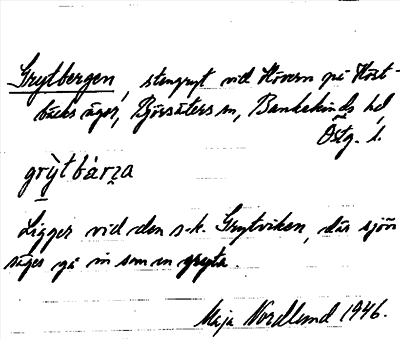 Grytbergen, stengryt vid Hövern på Häst-
bäcks ägor, Björsäters sn, Bankekinds hd,
Östg. l.
grỳtbárʒa
Ligger vid den s.k. Grytviken, där sjön
säges gå in som en gryta.
Maja Nordlund 1946.